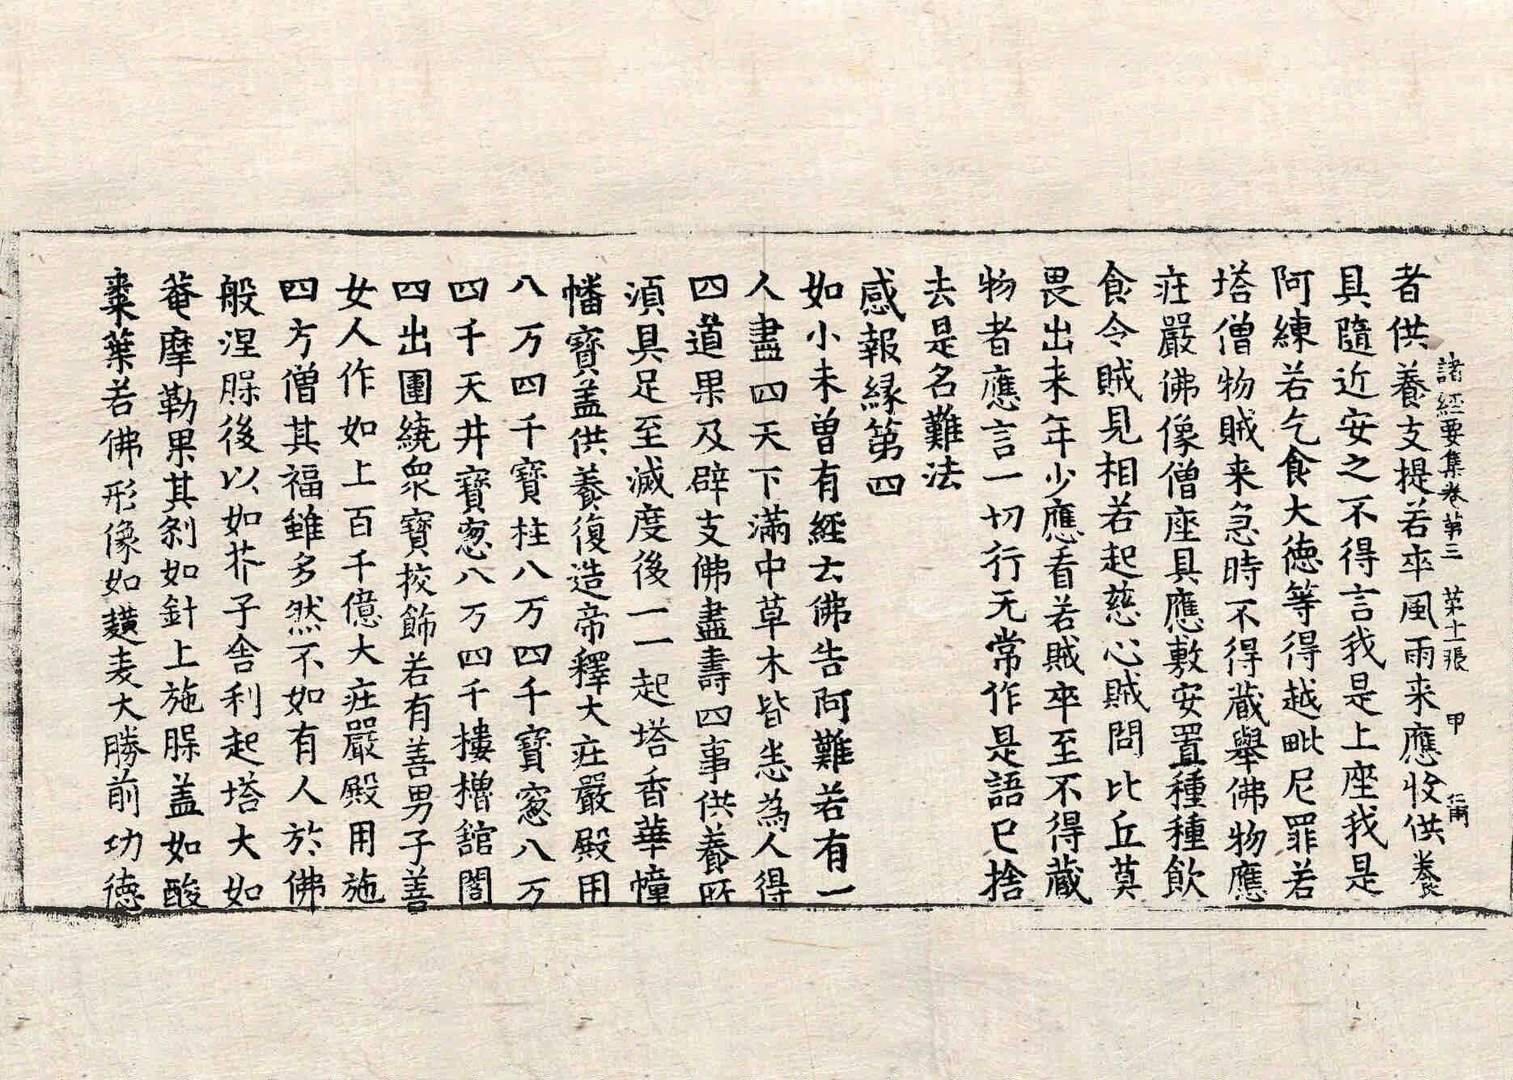 諸經要集卷苐三 苐十一張 甲
者供養支提若卒風雨来應收供養
具隨近安之不得言我是上座我是
阿練若乞食大德等得越毗尼罪若
塔僧物賊来急時不得藏舉佛物應
疘嚴佛像僧座具應敷安置種種飲
食令賊見相若起慈心賊問比丘莫
畏出来年少應看若賊卒至不得藏
物者應言一切行无常作是語已捨
去是名難法
感報緣第四
如小未曾有經云佛告阿難若有一
人盡四天下滿中草木皆悉為人得
四道果及辟支佛盡壽四事供養所
湏具足至滅度後一一起塔香華幢
幡寶盖供養復造帝釋大疘嚴殿用
八万四千寶柱八万四千寶窓八万
四千天井寶窓八万四千摟櫓舘閣
四出圍繞衆寶挍飾若有善男子善
女人作如上百千億大疘嚴殿用施
四方僧其福雖多然不如有人於佛
般涅脵後以如芥子舎利起塔大如
菴摩勒果其刹如針上施脵盖如酸
棗葉若佛形像如䵃麦大勝前功德